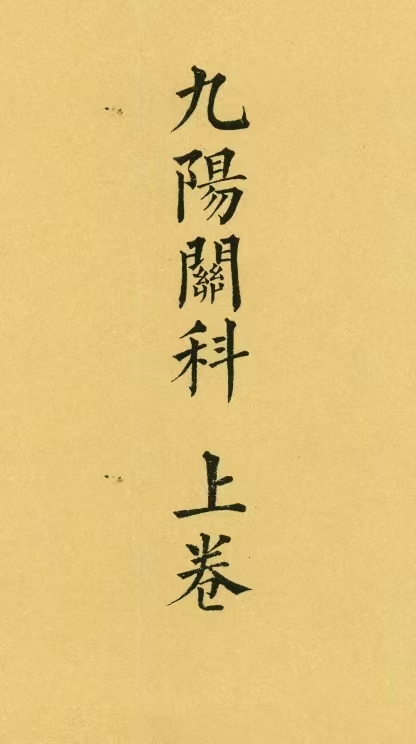 九陽關科 上卷